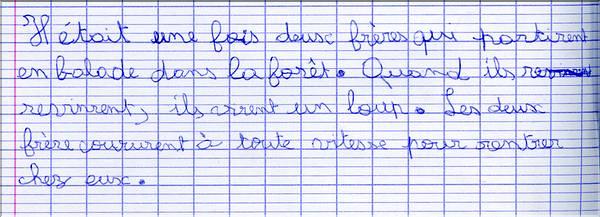 Il était une fois deux frères qui partirent
en balade dans la forêt. Quand ils
revinrent, ils virent un loup. Les deux
frère coururent à toute vitesse pour rentrer
chez eux.